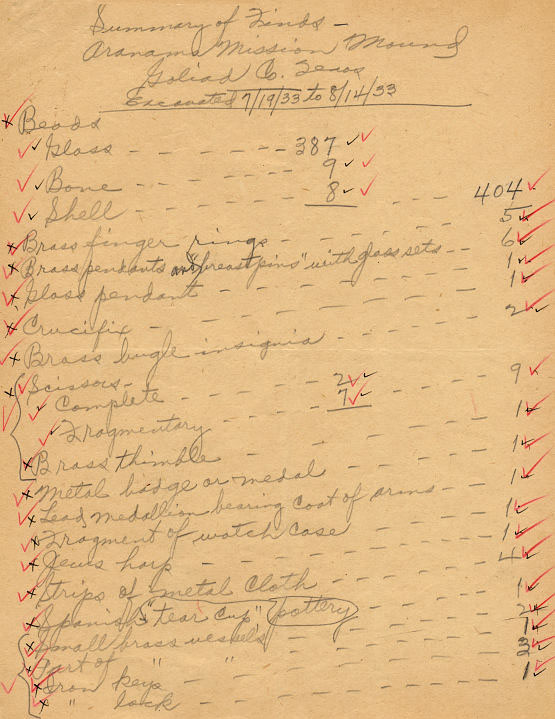 Summary of Finds -
Aranama Mission Mound
Goliad Co. Texas
Excavated 7/19/33 to 8/14/33
Beads
Glass - - - - - - - 387
Bone - - - - - - - 9
Shell - - - - - - - 8 - - - - 404
Brass finger rings - - - - - - - 5
Brass pendants and "breast pins" with glass sets - - 6
Glass pendant - - - - - - - 1
Crucifix - - - - - - - 1
Brass bugle insignia - - - - - - - 2
Scissors -
Complete - - - - - - 2
Fragmentary - - - - - - 7 - - - - 9
Brass thimble - - - - - - - 1
Metal badge or medal - - - - - - - 1
Lead medallion bearing coat of arms - - - 1
Fragment of watch case - - - - - - 1
Jews harp - - - - - - - 1
Strips of metal cloth - - - - - - - 4
Spanish "tear cup" pottery - - - - 1
Small brass vessels - - - - - - 2
Part of " " - - - - - - 7
Iron keys - - - - - - -
" lock - - - - - - - 1